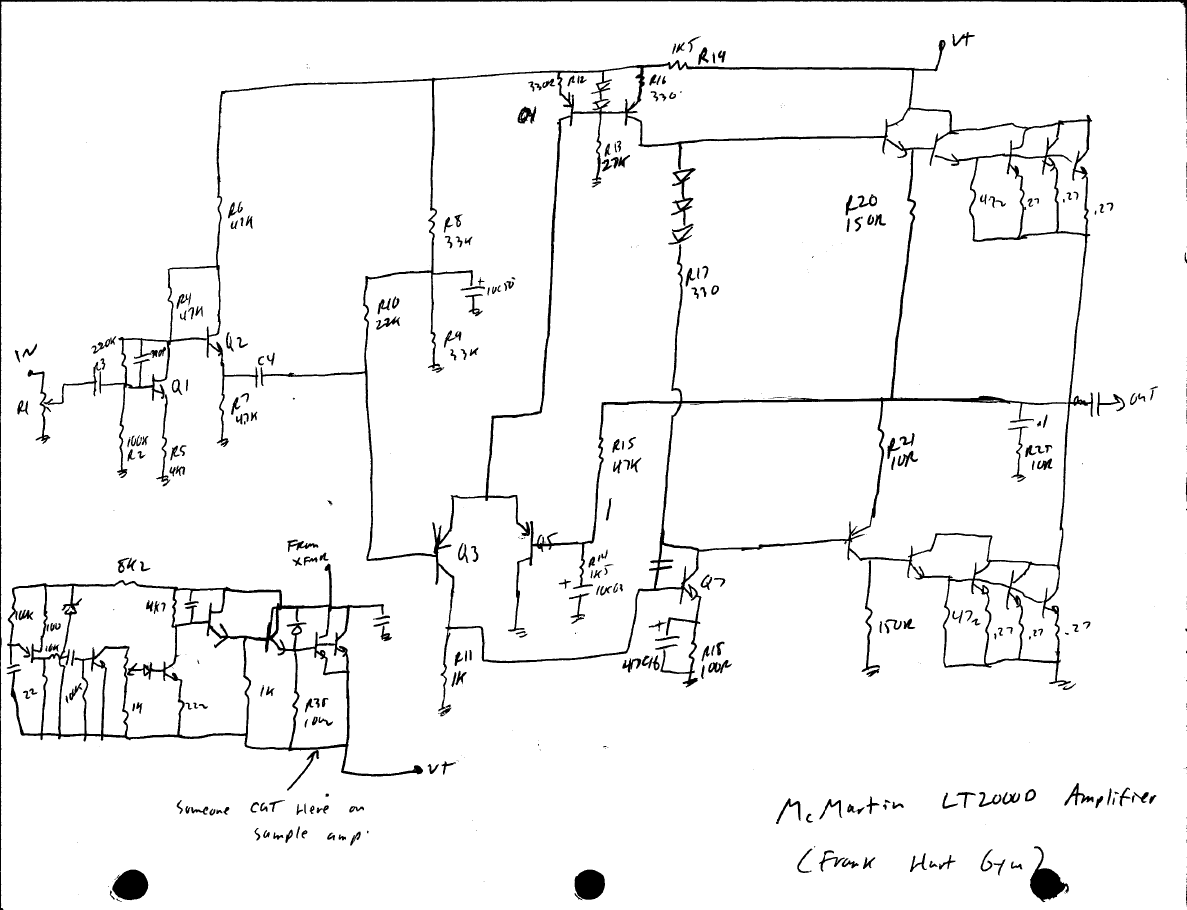 V+
1K5 R14
330R R12
R16
330
Q4
R13
27K
R6
47K
R8
33K
R20
150R
47Ω
.27
.27
.27
R17
330
R4
47K
R10
22K
+
R9
33K
IN
220K
R3
Q2
C4
Q1
R1
R7
47K
100K
R2
R5
4K7
OUT
.1
R25
10R
R15
47K
R21
10R
Q3
Q5
R14
1K5
+
Q7
From
XFMR
8K2
4K7
10K
100
10K
22
10K
1K
22Ω
1K
R35
10Ω
R11
1K
+
47C16
R18
100R
150R
47Ω
.27
.27
.27
V+
Someone CUT Here on
Sample amp.
McMartin LT2000D Amplifier
(Frank Hart Gym)